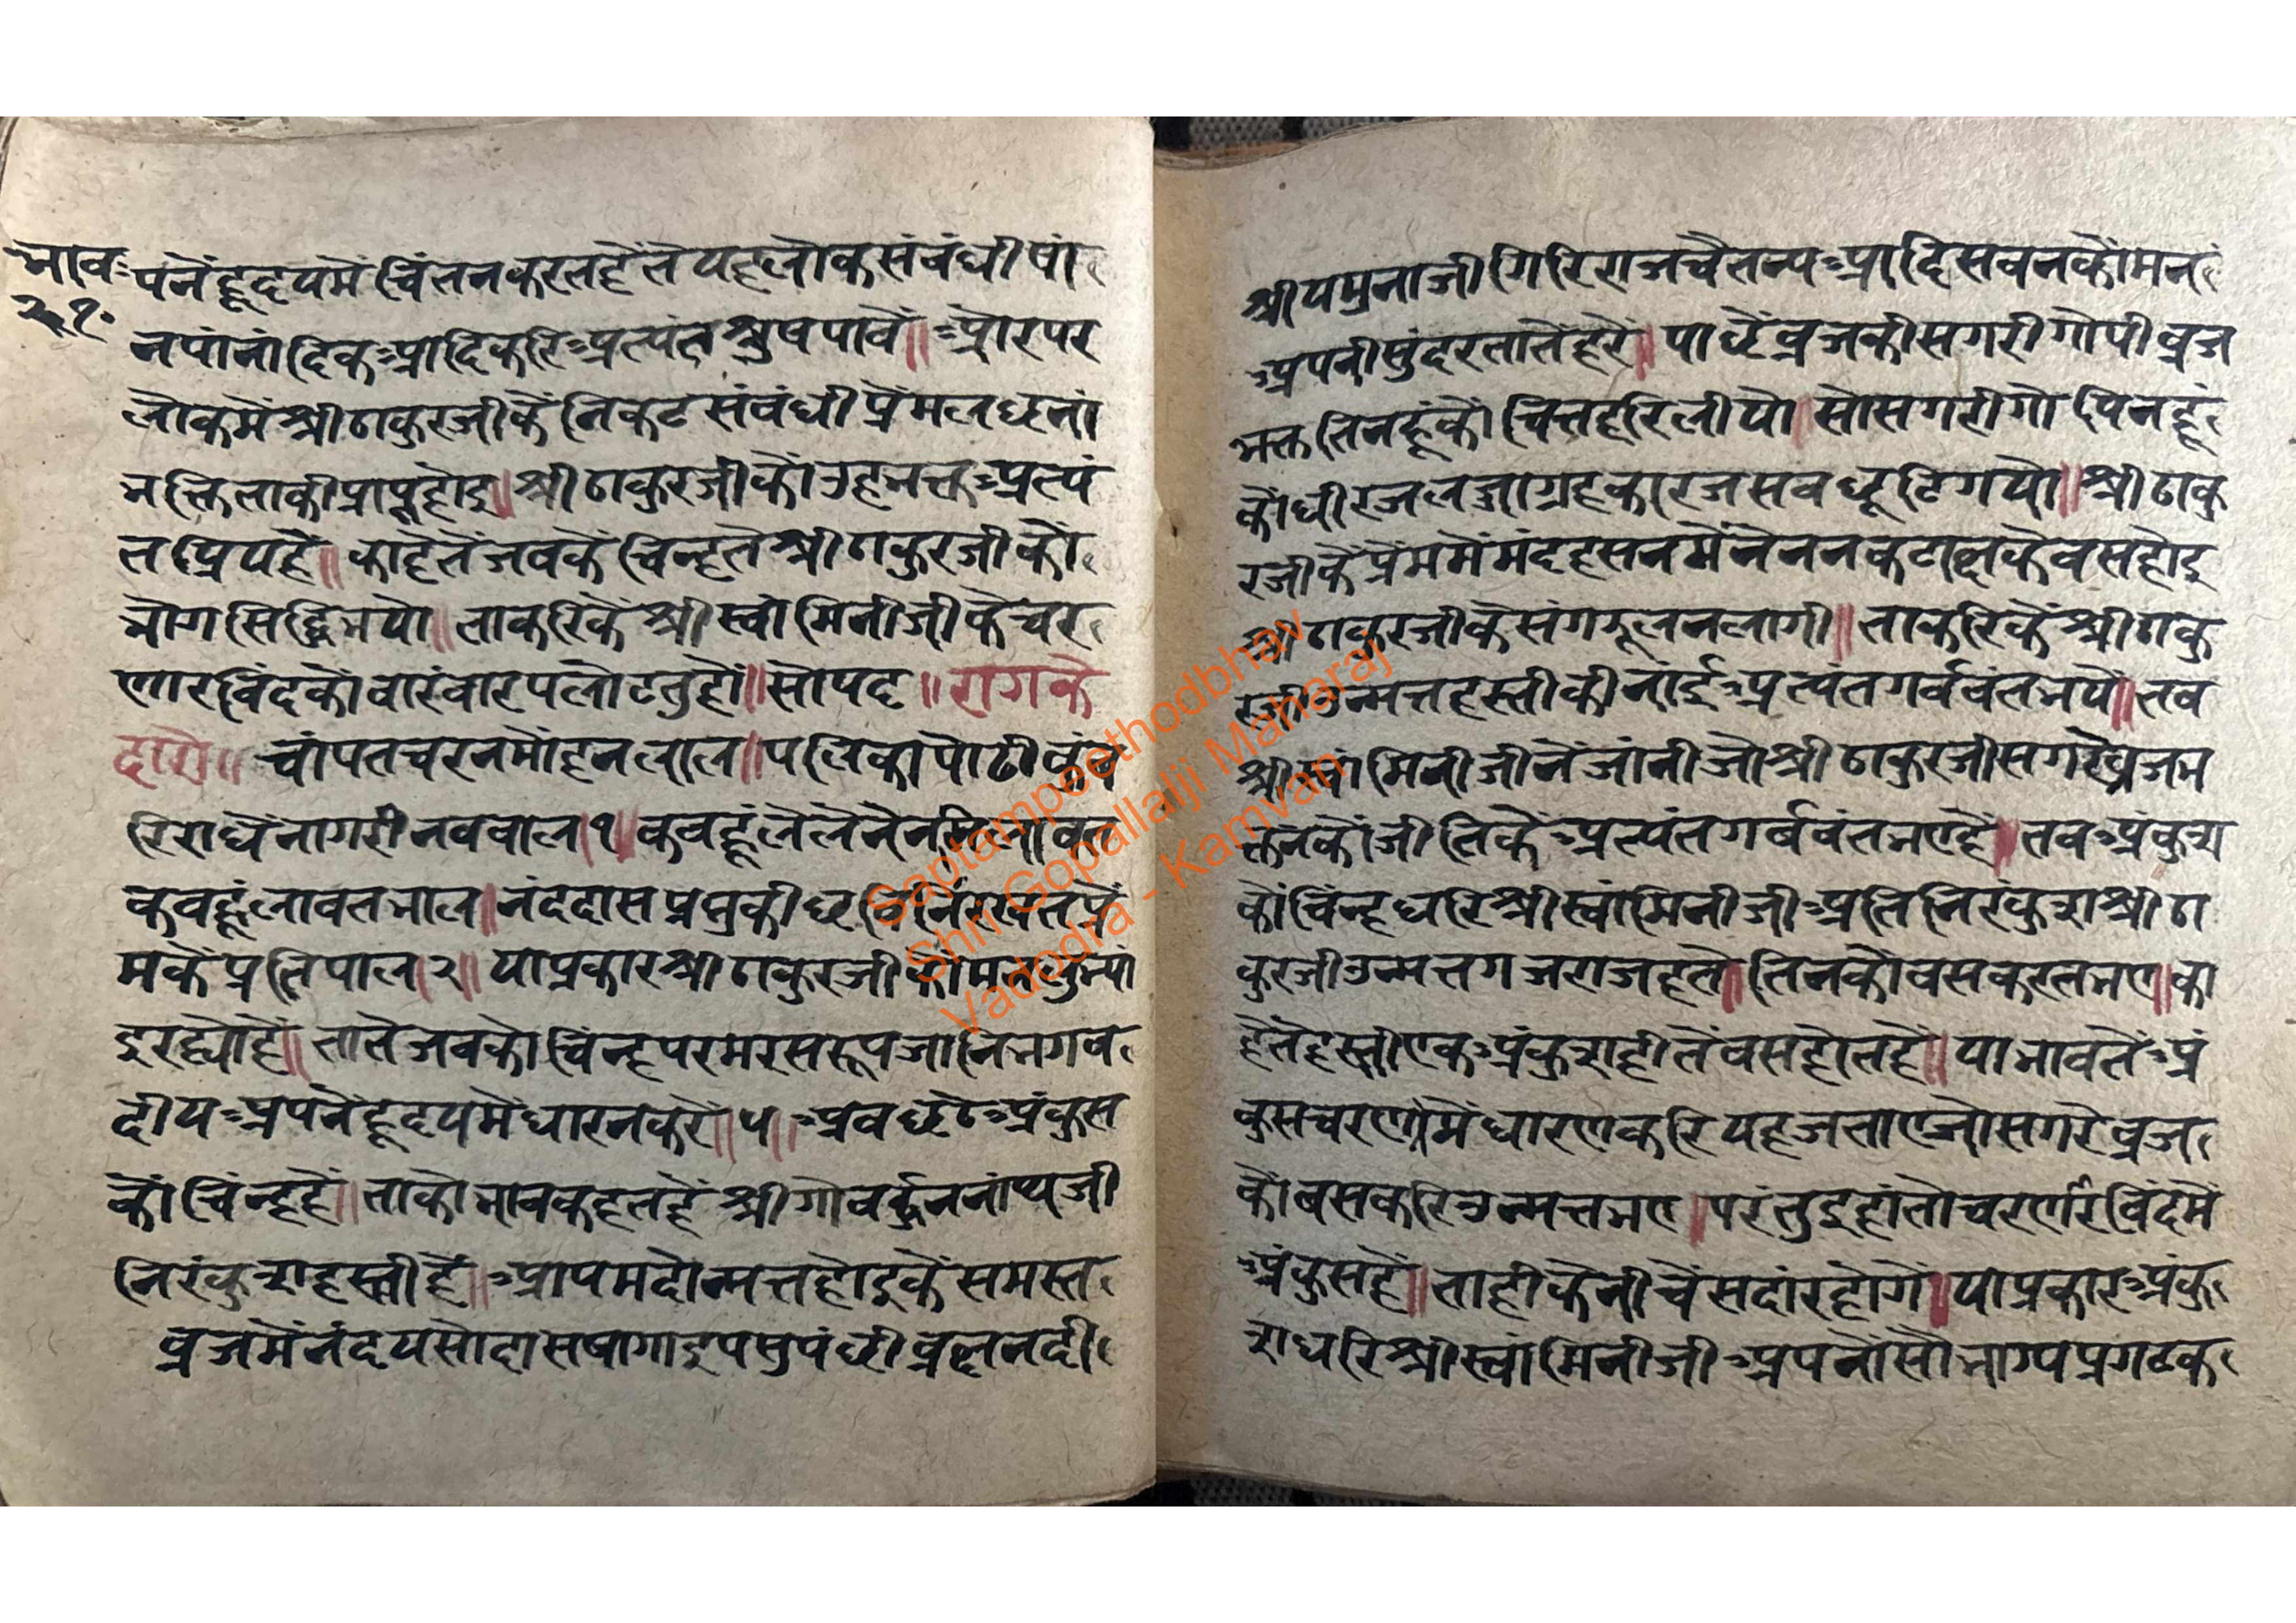 भाव
२१
पनेंहृदयमें चिंतनकरतहैंते यहलोकसंबंधीषां
नपांनांदिकआदिकरिअत्यंतश्रुषपावें॥ औरपर
लोकमेंश्रीठाकुरजीकेंनिकटसंबंधीप्रेंमलछनां
भक्तिताकीप्राप्तहोइ॥श्रीठाकुरजीकोंउहभक्तअत्यं
तप्रियहैं॥ काहेतेंजवकेंचिन्हतेश्रीठाकुरजीकों
भोगसिद्धिभयो॥ ताकरिकेंश्रीस्वामिनीजीकेचर
णारविंदकोंवारंवारपलोटतुहों॥सोपद॥रागके
दारो॥ चांपतचरनमोंहनलाल॥पलिकापोढीकुंव
रिराधेंनागरीनववाल।१॥कवहूंलेलेनेंनमिलावत
कवहूंलावतभाल॥नंददासप्रभुकीछविनिरखतप्रें
मकेंप्रतिपाल।२॥ याप्रकारश्रीठाकुरजीकोंमनलुभ्या
इरह्योहें॥तातेजवकोचिंन्हपरमरसरूपजानिभगव
दीयअपनेंहृदयमेंधारनकरें॥५॥अवछठेअंकुस
कों चिंन्हहें॥ताकोभावकहतहें श्रीगोवर्द्धननांथजी
निरंकुशहस्तीहें॥आपमदोन्मत्तहोइकेंसमस्त
व्रजमेंनंदयसोदासषागाइपसुपंछीव्रछनदी
श्रीयमुनाजीगिरिराजचैतन्यआदिसवनकोंमन
अपनीसुंदरतातेंहरें॥ पाछेंव्रजकीसगरीगोपीव्रज
भक्ततिनहूंकोंचित्तहरिलीयो॥सोसगरीगोपिनहूं
कोंधीरजलज्जाग्रहकारजसवछूटिगयो॥श्रीठाकु
रजीकेंप्रेंममेंमंदहसनमेंनेंननकटाछकेवसहोइ
श्रीठाकुरजीकेसंगडूलनलागी॥ताकरिकेंश्रीठाकु
रजीउन्मत्तहस्तीकीनांईअत्यंतगर्ववंतभये॥तव
श्रीस्वांमिनीजीनेंजांनीजोश्रीठाकुरजीसगरेव्रजभ
क्तनकोंजीतिकेंअत्यंतगर्बवंतभएहें॥तवअंकुश
कोंचिंन्हधरिश्रीस्वांमिनीजीअतिनिरंकुशश्रीठा
कुरजीउन्मत्तगजराजहतो॥तिनकोंवसकरतभए॥का
हेतेंहस्तीएकअंकुशहीतेंवसहोतहें॥याभावतेंअं
कुसचरणमेंधारणकरियहजताएजोसगरेव्रज
कोंबसकरिउन्मत्तभए॥परंतुइहांतोचरणरविंदमें
अंकुसहें॥ताहीकेनीचेंसदांरहोगे॥याप्रकारअंकु
शधरिश्रीस्वांमिनीजीअपनोंसोभाग्यप्रगटक
Saptampeethodbhav
Shri Gopallalji Maharaj
Vadodra - Kamvan